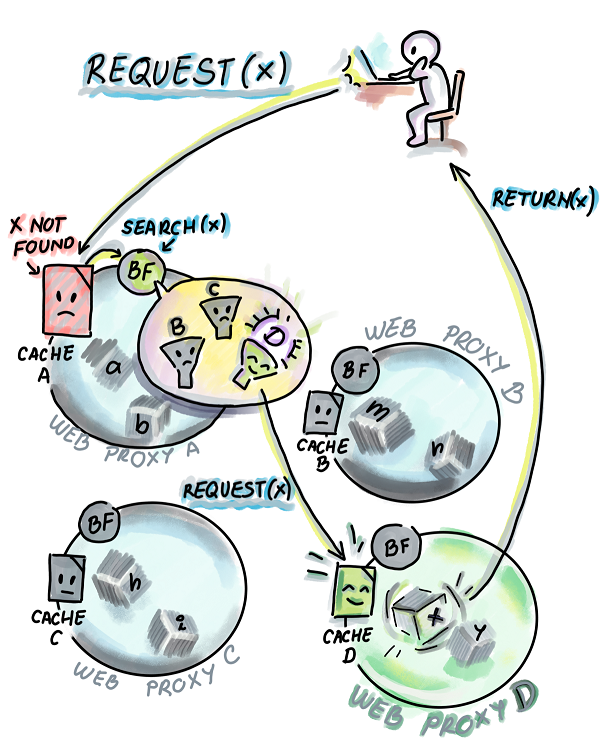 REQUEST(x)
RETURN(x)
X NOT
FOUND
SEARCH(x)
BF
C
B
D
F
CACHE
A
a
b
WEB PROXY A
WEB PROXY B
BF
CACHE
B
m
n
REQUEST(x)
BF
CACHE
C
h
i
WEB PROXY C
BF
CACHE
D
x
y
WEB PROXY D